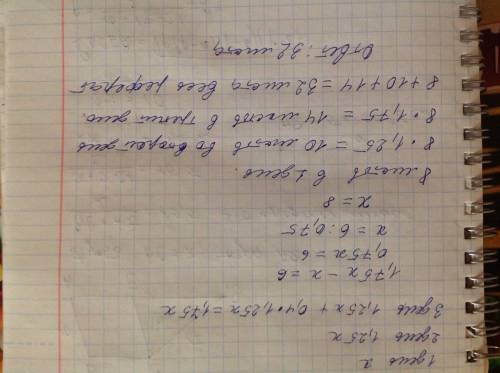 1 день x
2 день 1,25x
3 день 1,25x + 0,4•1,25x = 1,75x
1,75x - x = 6
0,75x = 6
x = 6 : 0,75
x = 8
8 листов в 1 день.
8 • 1,25 = 10 листов во второй день
8 • 1,75 = 14 листов в третий день.
8 + 10 + 14 = 32 листа весь реферат
Ответ: 32 листа